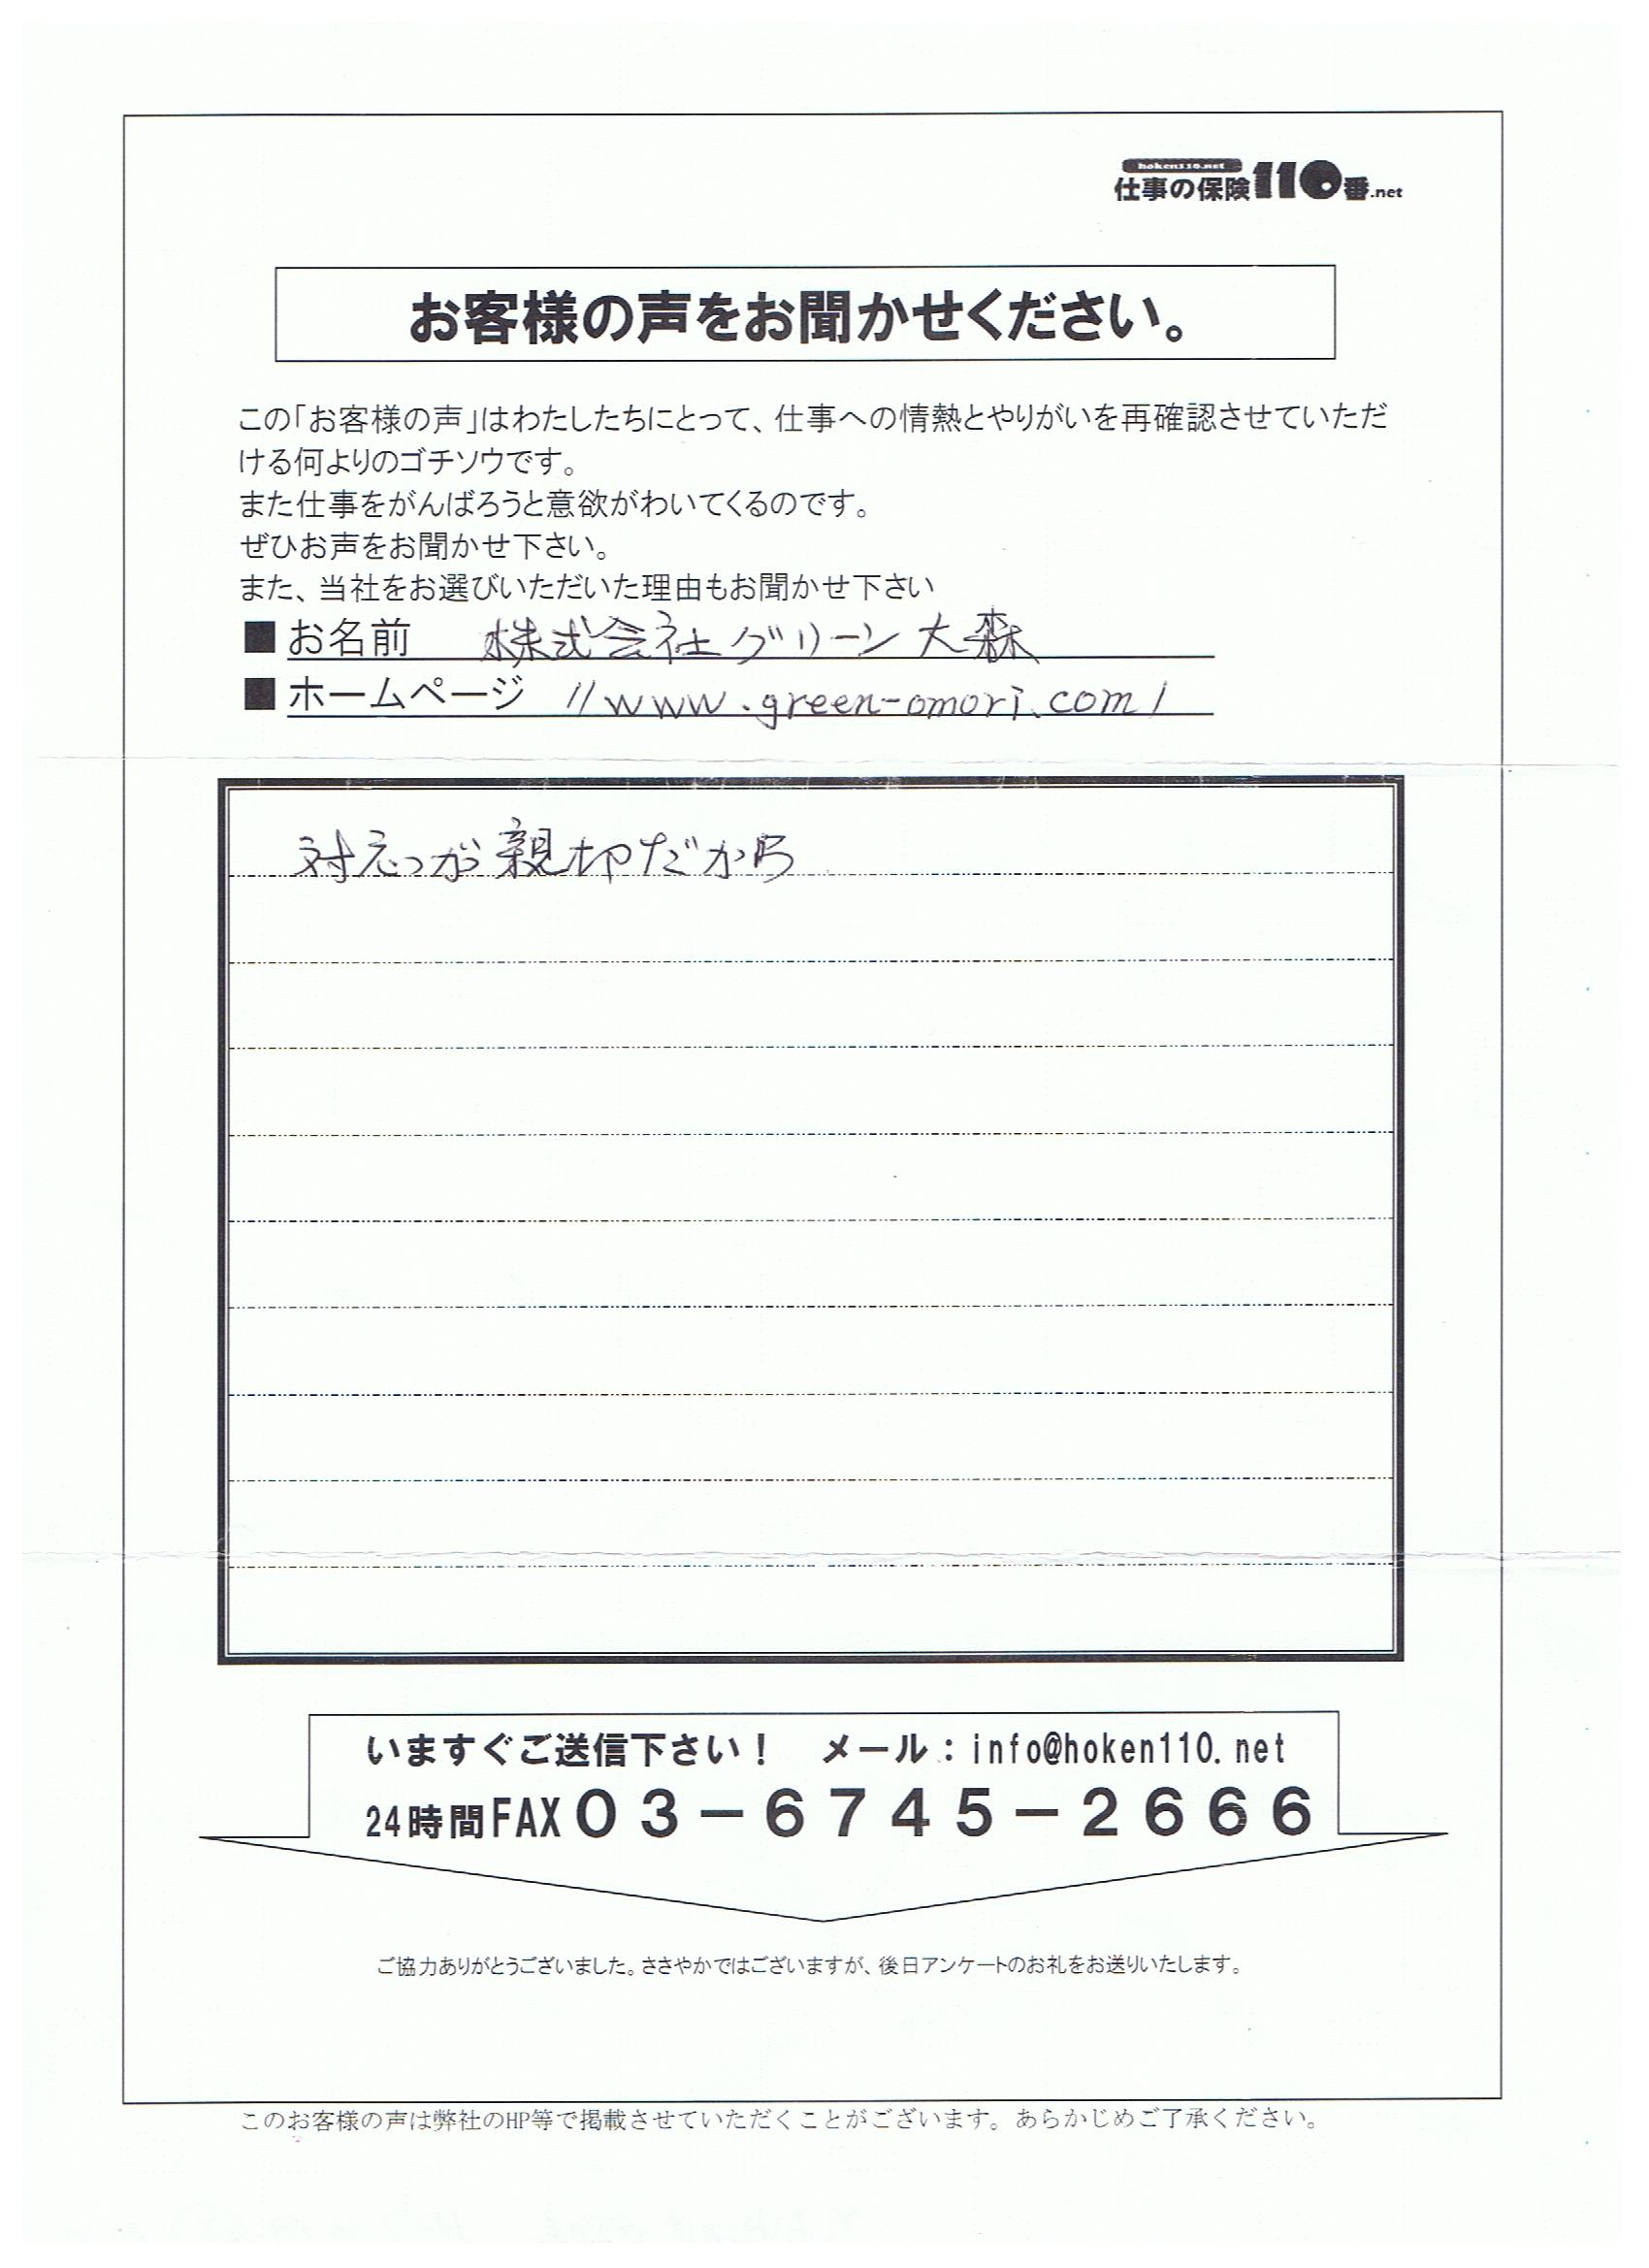 hoken110.net
仕事の保険110番.net
お客様の声をお聞かせください。
この「お客様の声」はわたしたちにとって、仕事への情熱とやりがいを再確認させていただだ
ける何よりのゴチソウです。
また仕事をがんばろうと意欲がわいてくるのです。
ぜひお声をお聞かせ下さい。
また、当社をお選びいただいた理由もお聞かせ下さい
■お名前 株式会社グリーン大森
■ホームページ //www.green-omori.com/
対応が親切だから
いますぐご送信下さい! メール:info@hoken110.net
24時間FAX03-6745-2666
ご協力ありがとうございました。ささやかではございますが、後日アンケートのお礼をお送りいたします。
このお客様の声は弊社のHP等で掲載させていただくことがございます。あらかじめご了承ください。